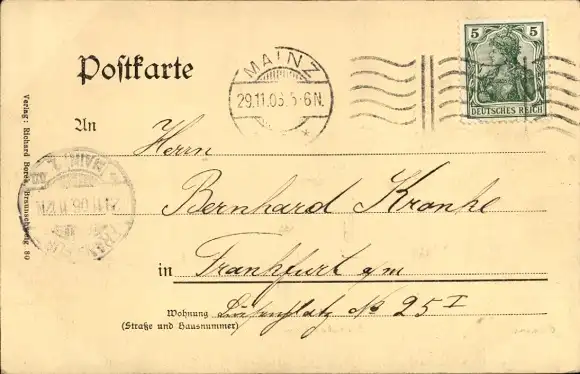 Postkarte
MAINZ
29.11.06. 5-6 N.
5
DEUTSCHES REICH
An
Herrn
Bernhard Kranke
in Frankfurt a/m
Wohnung Luisenplatz No 25 I
(Straße und Hausnummer)
Verlag: Richard Borek, Braunschweig. 80